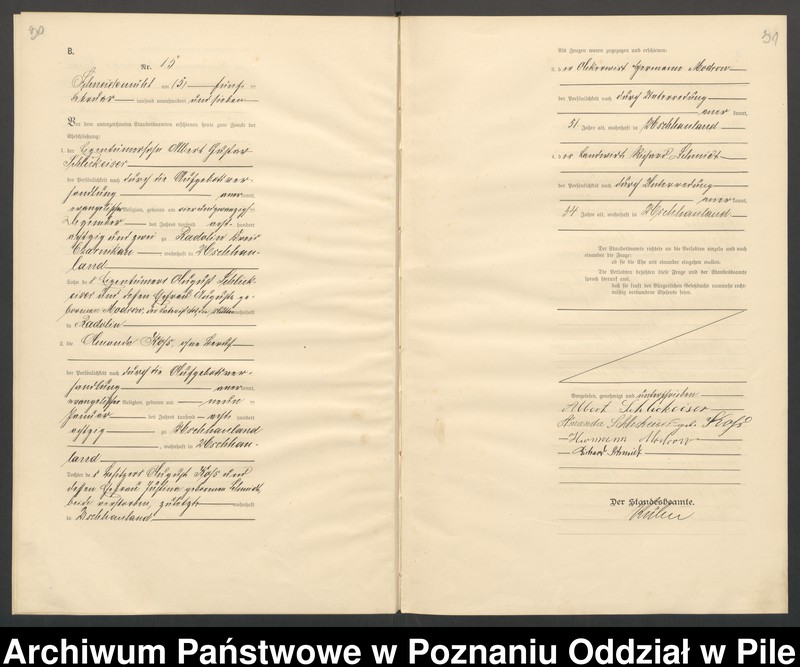 30
B.
Nr. 15
Schneidemühl am 15 fünf ten
tausend neunhundert und sieben
Vor dem unterzeichneten Standesbeamten erschienen heute zum Zwecke der
Eheschließung:
1. der Eigentümersohn Albert Gustav
Schlickeiser
der Persönlichkeit nach durch die Aufgebotsver-
handlung aner kannt,
evangelischer Religion, geboren am vierundzwanzigsten
des Jahres tausend acht hundert
achtzig und zwei zu Radolin Kreis
Czarnikau, wohnhaft in
land
Sohn des Eigentümers August Schlick-
eiser und dessen Ehefrau Auguste ge-
borenen Modrow, wohnhaft
in Radolin
2. die Amanda Koß, ohne Beruf
der Persönlichkeit nach durch die Aufgebotsver-
handlung aner kannt,
evangelischer Religion, geboren am neunten
Januar des Jahres tausend acht hundert
achtzig zu
, wohnhaft in
land
Tochter des Besitzers August Koß und
dessen Ehefrau Justine geborenen Schmidt,
beide verstorben, zuletzt wohnhaft
in
31
Als Zeugen waren zugezogen und erschienen:
3. der Ackerwirt Hermann Modrow
der Persönlichkeit nach durch Unterredung
aner kannt,
51 Jahre alt, wohnhaft in
4. der Landwirt Richard Schmidt
der Persönlichkeit nach durch Unterredung
aner kannt,
Jahre alt, wohnhaft in
Der Standesbeamte richtete an die Verlobten einzeln und nach
einander die Frage:
ob sie die Ehe mit einander eingehen wollen.
Die Verlobten bejahten diese Frage und der Standesbeamte
sprach hierauf aus,
daß sie kraft des Bürgerlichen Gesetzbuchs nunmehr recht-
mäßig verbundene Eheleute seien.
Vorgelesen, genehmigt und unterschrieben
Albert Schlickeiser
Amanda Schlickeiser geb. Koß
Hermann Modrow
Richard Schmidt
Der Standesbeamte.
Archiwum Państwowe w Poznaniu Oddział w Pile